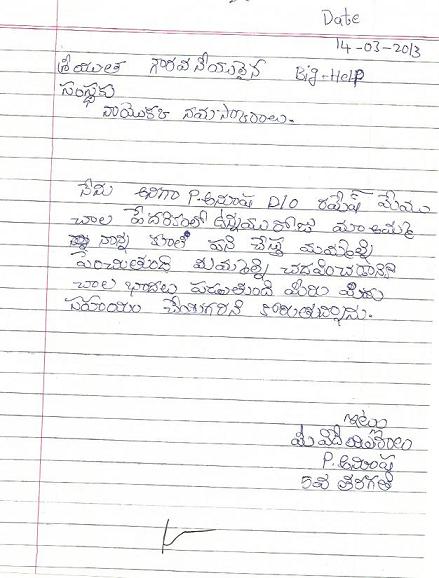 Date
14-03-2013
శ్రీయుత గౌరవనీయులైన Big-Help
సంస్థకు
నాయొక్క నమస్కారాలు.
నేను అనగా P.అనూష D/O రమేష్ మేము
చాల పేదరికంలో ఉన్నము రోజు మా అమ్మ
నాన్న కూలి పని చేస్తు మమ్మల్ని
పెంచుతుంది మమ్మల్ని చదివించడానికి
చాల భాదలు పడుతుంది మీరు మాకు
సహాయం చేయగలరని కోరుతున్నాను.
ఇట్లు
మీ విదేయురాలు
P.అనూష
5వ తరగతి